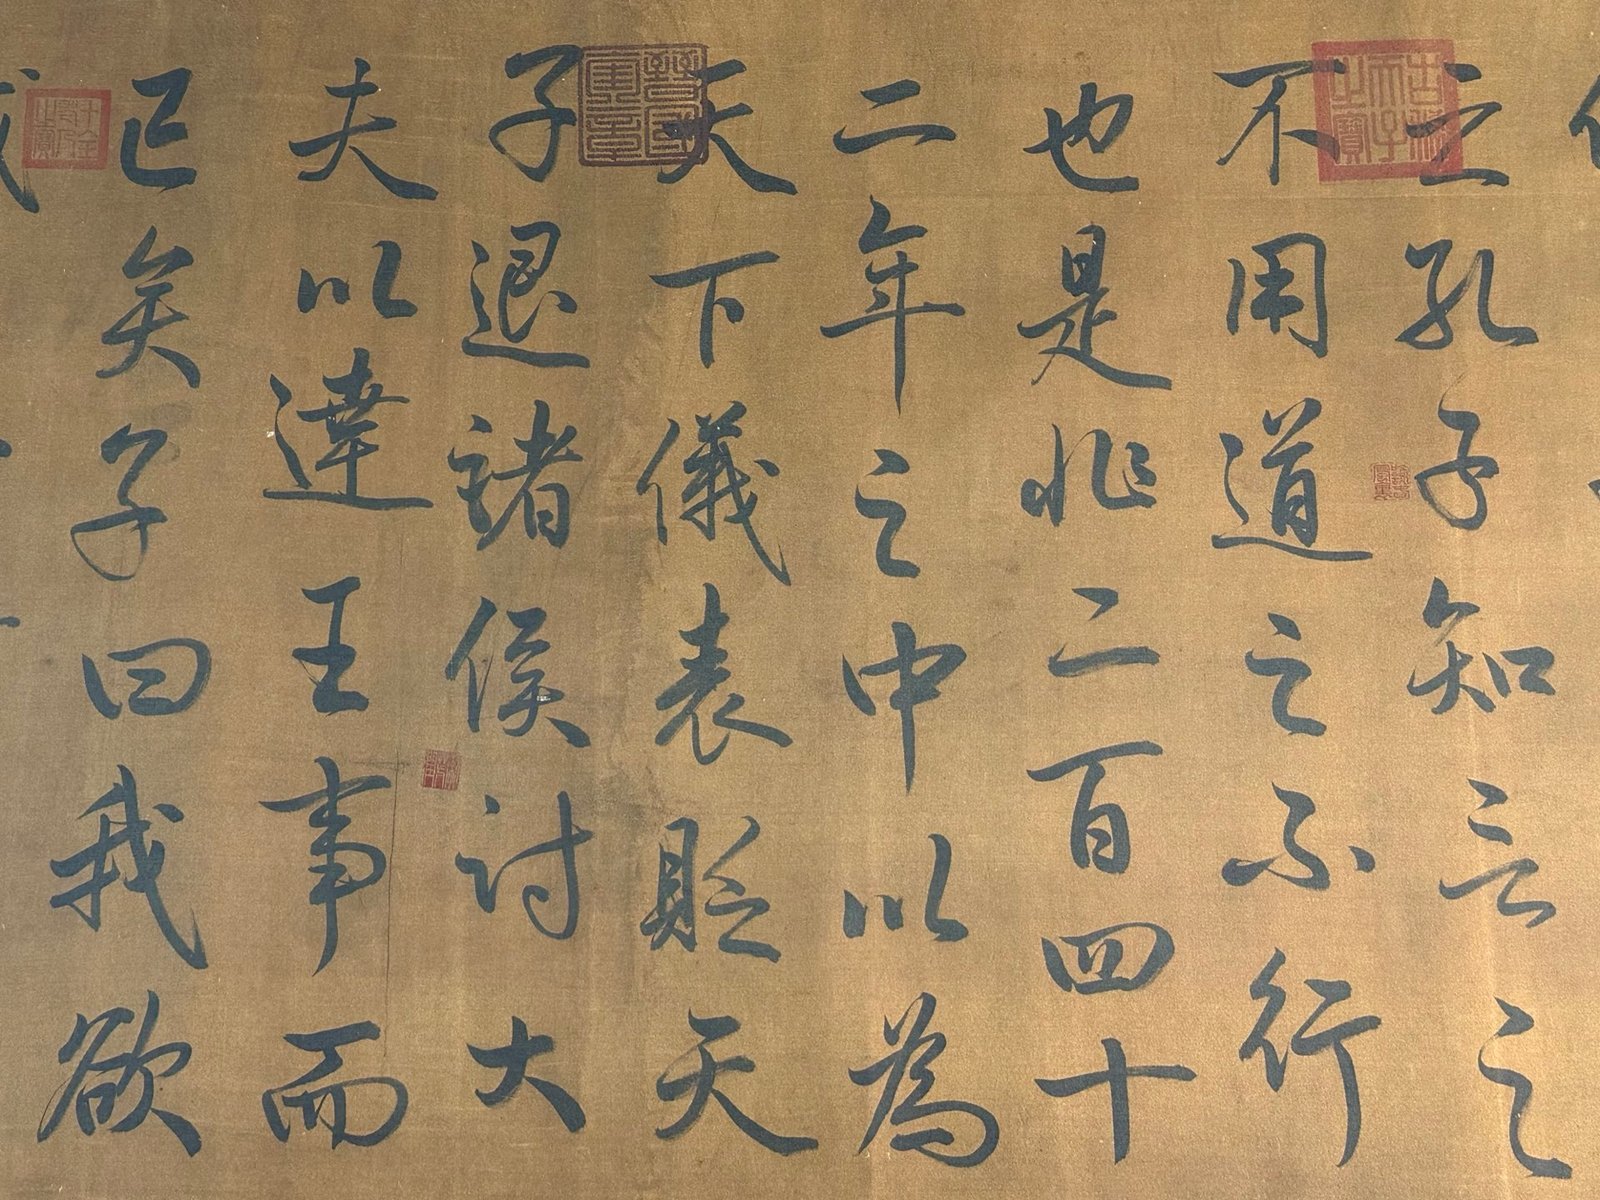 之孔子知言之
不用道之不行
也是非二百四十
二年之中以為
天下儀表貶天
子退諸侯討大
夫以達王事而
已矣子曰我欲
古希天子之寶